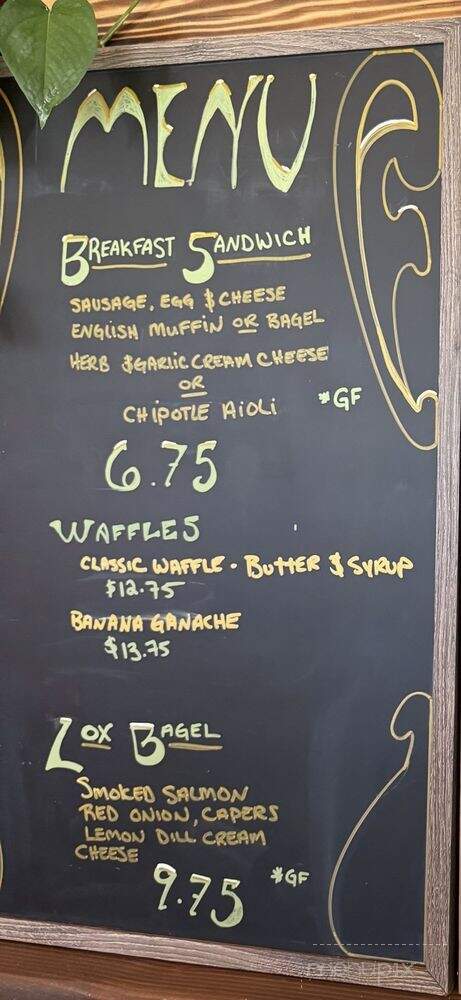 MENU
BREAKFAST SANDWICH
SAUSAGE, EGG & CHEESE
ENGLISH MUFFIN OR BAGEL
HERB & GARLIC CREAM CHEESE
OR
CHIPOTLE AIOLI *GF
6.75
WAFFLES
CLASSIC WAFFLE · BUTTER & SYRUP
$12.75
BANANA GANACHE
$13.75
LOX BAGEL
SMOKED SALMON
RED ONION, CAPERS
LEMON DILL CREAM
CHEESE
9.75 *GF